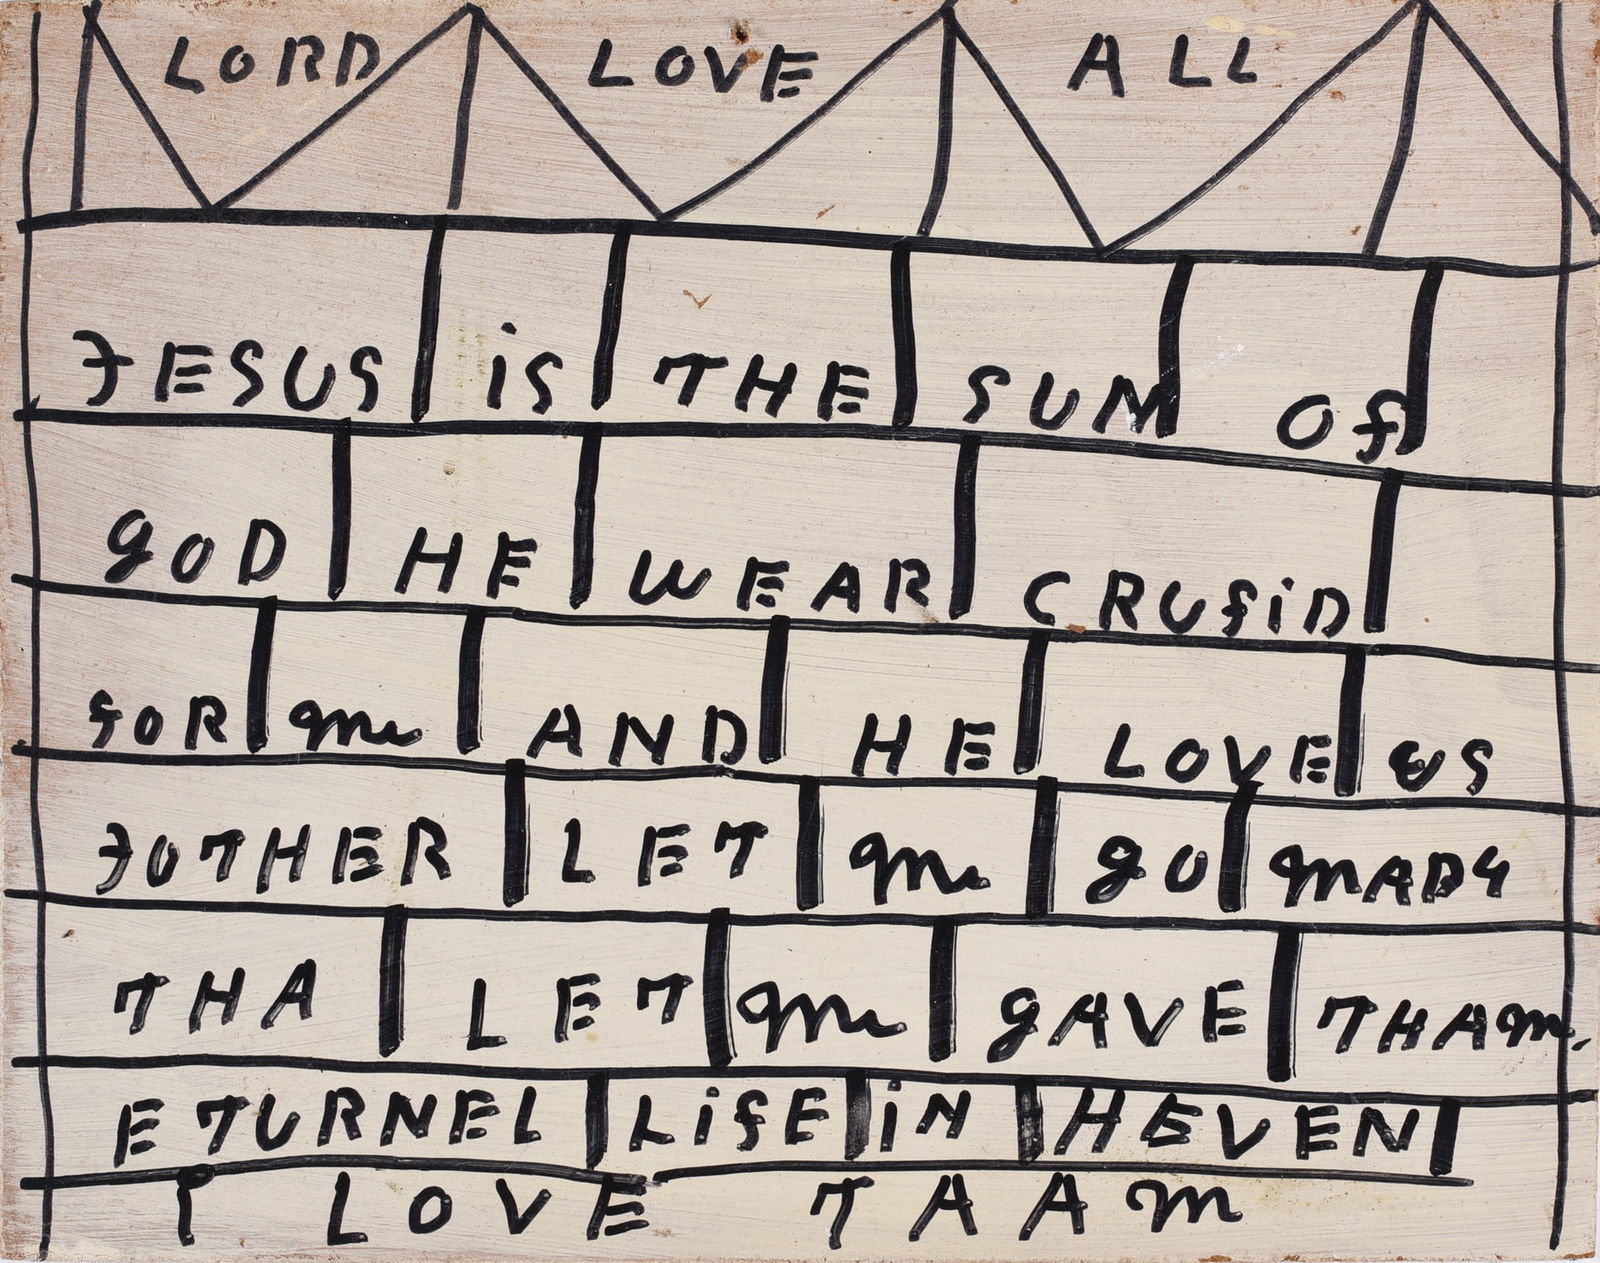 LORD LOVE ALL
JESUS iS THE SUM Of
gOD HE WEAR CRUfiD
fOR me AND HE LOVE US
JOTHER LET me gO mADY
THA LET me gAVE THAm.
ETURNEL LifE iN HEVEN
I LOVE TAAm